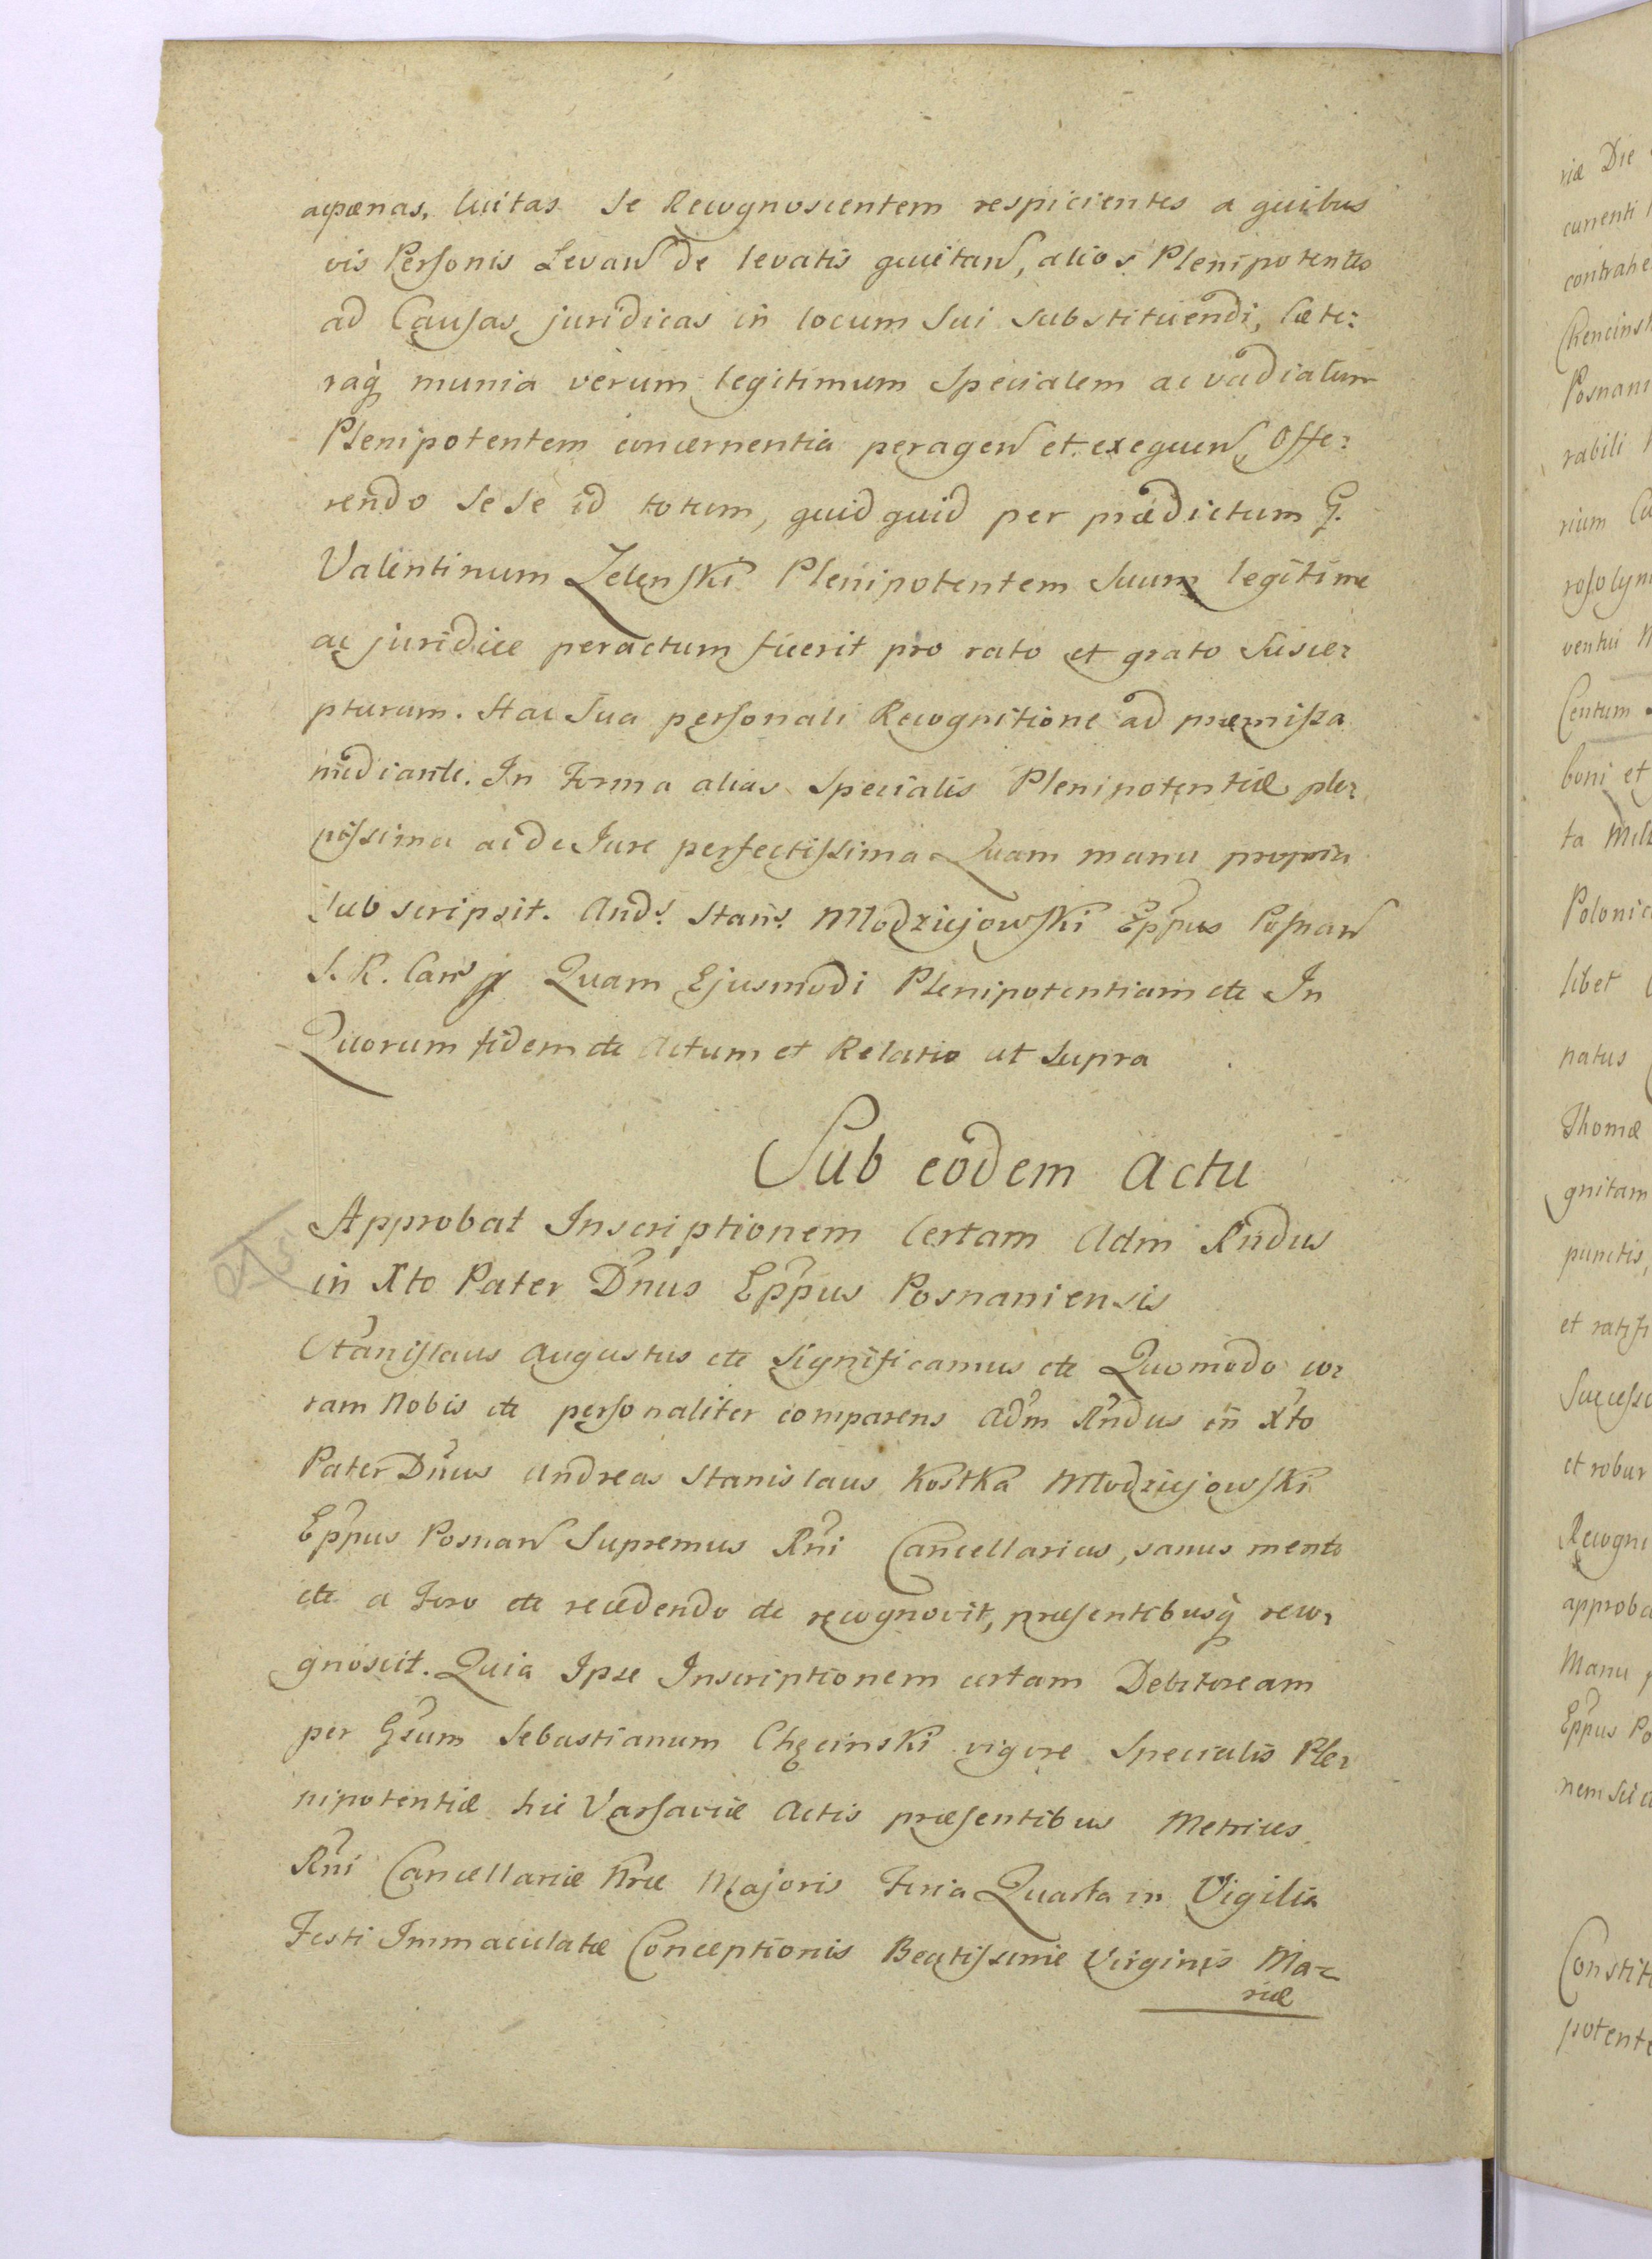 ac pænas, luitas Se Recognoscentem respicientes a quibus
vis Personis Levan̄ de levatis quietan̄, alios Plenipotentes
ad Causas juridicas in locum Sui Substituendi, Cæte:
raq̃ munia verum legitimum Specialem ac vadiatum
Plenipotentem concernentia peragen̄ et exequen̄, Offe:
rendo Se Se id totum, quid quid per prædictum G.
Valentinum Zelenski Plenipotentem Suum legitime
ac juridice peractum fuerit pro rato et grato Susce:
pturum. Hac Sua personali Recognitione ad præmissa
mediante. In Forma alias Specialis Plenipotentiæ ple:
nissima ac de Jure perfectissima Quam manu propria
Subscripsit. Andˢ Stanˢ Młodziejowski Epp̃us Posnan̄
S. R. Canˢ Quam Ejusmodi Plenipotentiam etc In
Quorum fidem etc Actum et Relatio ut Supra
Sub eodem Actu
Approbat Inscriptionem Certam Adm Rn̄dus
in Xto Pater Dn̄us Epp̃us Posnaniensis
Stanislaus Augustus etc Significamus etc Quomodo co:
ram Nobis etc personaliter comparens Adm̄ Rn̄dus in Xto
Pater Dn̄us Andreas Stanislaus Kostka Młodziejowski
Epp̃us Posnan̄ Supremus Rn̄i Cancellarius, sanus mente
etc a Foro etc recedendo etc recognovit, præsentibusq̃ reco:
gnoscit. Quia Ipse Inscriptionem certam Debitoream
per Gsum Sebastianum Chęcinski vigore Specialis Ple:
nipotentiæ hic Varsaviæ Actis præsentibus Metrices
Rn̄i Cancellariæ Nræ Majoris Feria Quarta in Vigilia
Festi Immaculatæ Conceptionis Beatissimæ Virginis Ma:
riæ
riæ Die
currenti
contrahe
Chencinsk
Posnani
rabili
rium Cu
rosolym
ventui
Centum
boni et
ta Mill
Polonic
libet
natus
Thomæ
gnitam
punctis,
et ratifi
Successo
et robur
Recogni
approba
Manu p
Epp̃us Po
nem
Constit
potente